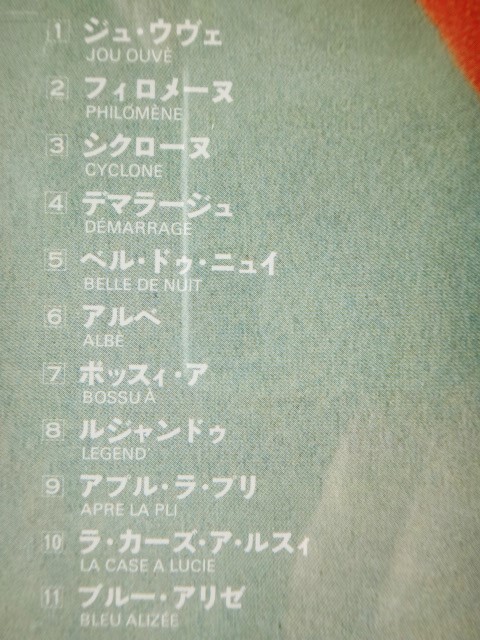 1 ジュ・ウヴェ
JOU OUVÈ
2 フィロメーヌ
PHILOMÈNE
3 シクローヌ
CYCLONE
4 デマラージュ
DÉMARRAGE
5 ベル・ドゥ・ニュイ
BELLE DE NUIT
6 アルベ
ALBÈ
7 ボッスィ・ア
BOSSU À
8 ルジャンドゥ
LEGEND
9 アプル・ラ・プリ
APRE LA PLI
10 ラ・カーズ・ア・ルスィ
LA CASE A LUCIE
11 ブルー・アリゼ
BLEU ALIZÉE